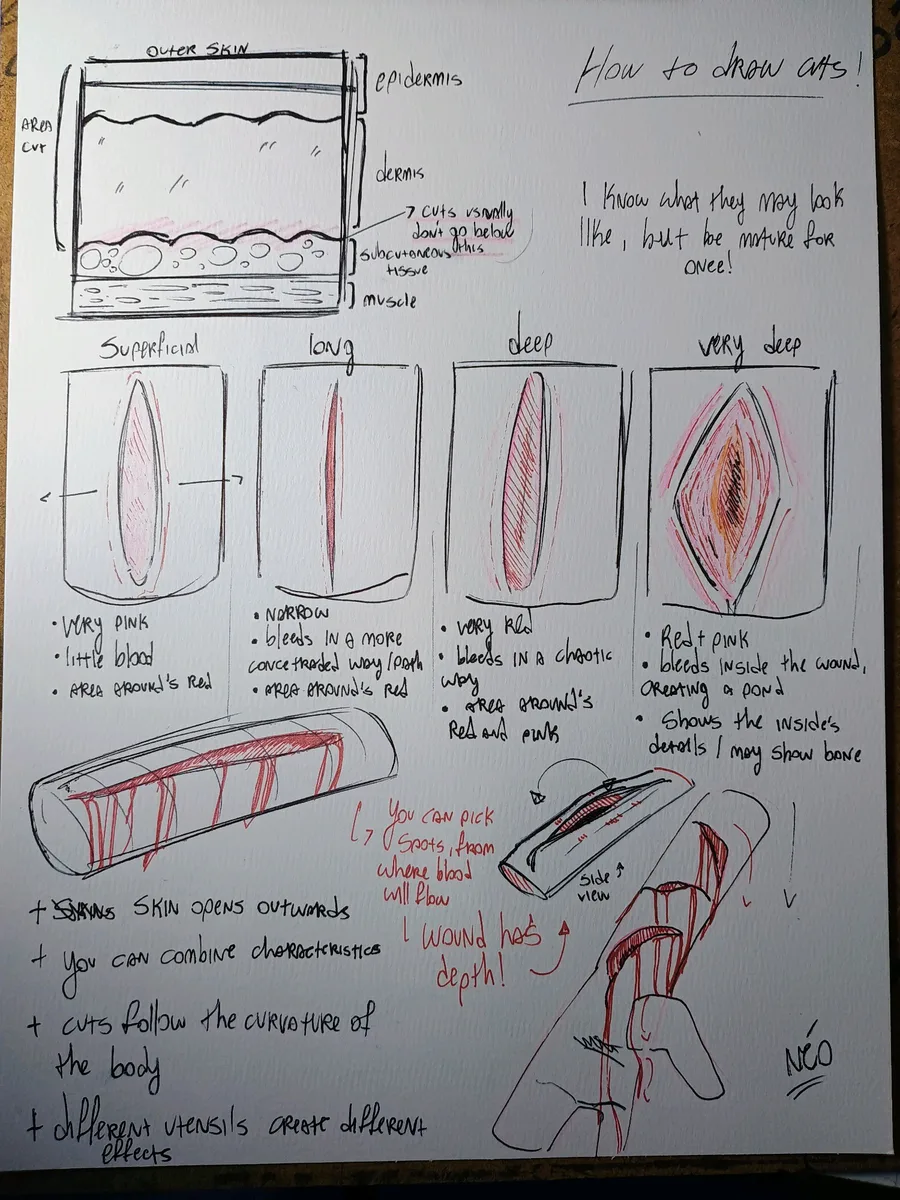 OUTER SKIN
How to draw cuts!
epidermis
AREA
CUT
dermis
cuts usually
don't go below
this
subcutaneous
tissue
muscle
I know what they may look
like, but be mature for
once!
Superficial
long
deep
very deep
• VERY PINK
• little blood
• AREA AROUND's Red
• NARROW
• bleeds IN A MORE
concetraded way/path
• AREA AROUND's Red
• VERY Red
• bleeds IN A CHAOTIC
way
• AREA AROUND's
Red and pink
• Red + PINK
• bleeds inside the wound,
creating a pond
• Shows the inside's
details / may show bone
You can pick
spots, from
where blood
will flow
side
view
WOUND has
depth!
+ SKIN opens outwards
+ you can combine characteristics
+ cuts follow the curvature of
the body
+ different utensils create different
effects
NÉO